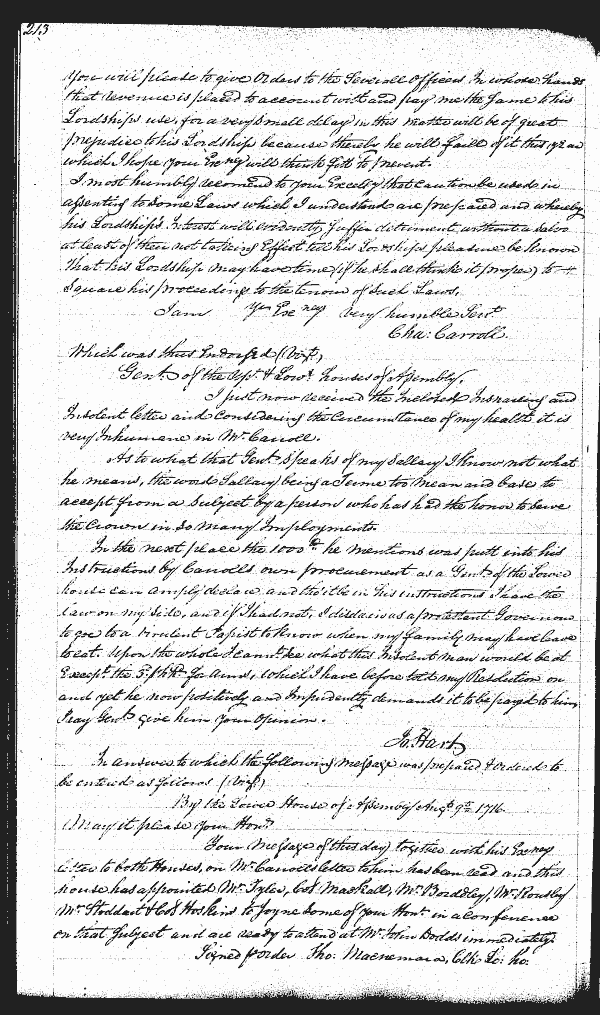 213
You will please to give Orders to the Severall Officers In whose hands
that revenue is placed to account with and pay me the Same to his
Lordships use, for a very Small delay in this matter will be of great
prejudice to his Lordship because thereby he will faile of it this year
which I hope your Exncy will think fitt to prevent.
I most humbly recomend to your Excelcy that caution be used in
assenting to Some Laws which I understand are prepared and whereby
his Lordship's Interest will evidently Suffer detriment without a Salvo
at least of their not taking Effect till his Lordships pleasure be known
That his Lordship may have time (if he shall think it proper) to
Square his proceeding to the tenour of Such Laws.
I am Yor Exncys very humble Servt
Cha: Carroll.
Which was thus Endorsed (Vizt)
Gent of the Uppr & Lowr houses of Assembly,
I just now received the Inclosed Insnaring and
Insolent letter and considering the Circumstance of my health it is
very Inhumane in Mr Carroll.
As to what that Gent Speaks of my Sallary I know not what
he means, the word Sallary being a Terme too mean and base to
accept from a Subject by a person who has had the honor to Serve
the Crown in So many Imployments.
In the next place the 1000 he mentions was putt into his
Instructions by Carrolls own procurement as a Gent of the Lower
house can amply declare and tho' it be in his instructions I have the
Law on my Side, and if I had not, I disdain as a protestant Governour
to goe to a virulent Papist to know when my family may have leave
to eat. Upon the whole I cannt See what this Insolent man would be at
Except the 3d p hhd for arms, which I have before told my Resolution on
and yet he now positively and Impudently demands it to be payd to him
Pray Gent give him your Opinion.
Jo. Hart
In answer to which the following message was prepared & ordered to
be entered as follows (Vizt)
By the Lower House of Assembly Augt 9th 1716
May it please your Honrs
Your Message of this day together with his Exncys
letter to both Houses, on Mr Carrolls letter to him has been read and this
house has appointed Mr Tyler, Col Mackall, Mr Bordley, Mr Rousby
Mr Stoddart & Col Hoskins to Joyne Some of your Honrs in a conference
on that Subject and are ready to attend at Mr John Dodds immediately.
Signed p order Tho: Macnemara, Clk Lo: ho.